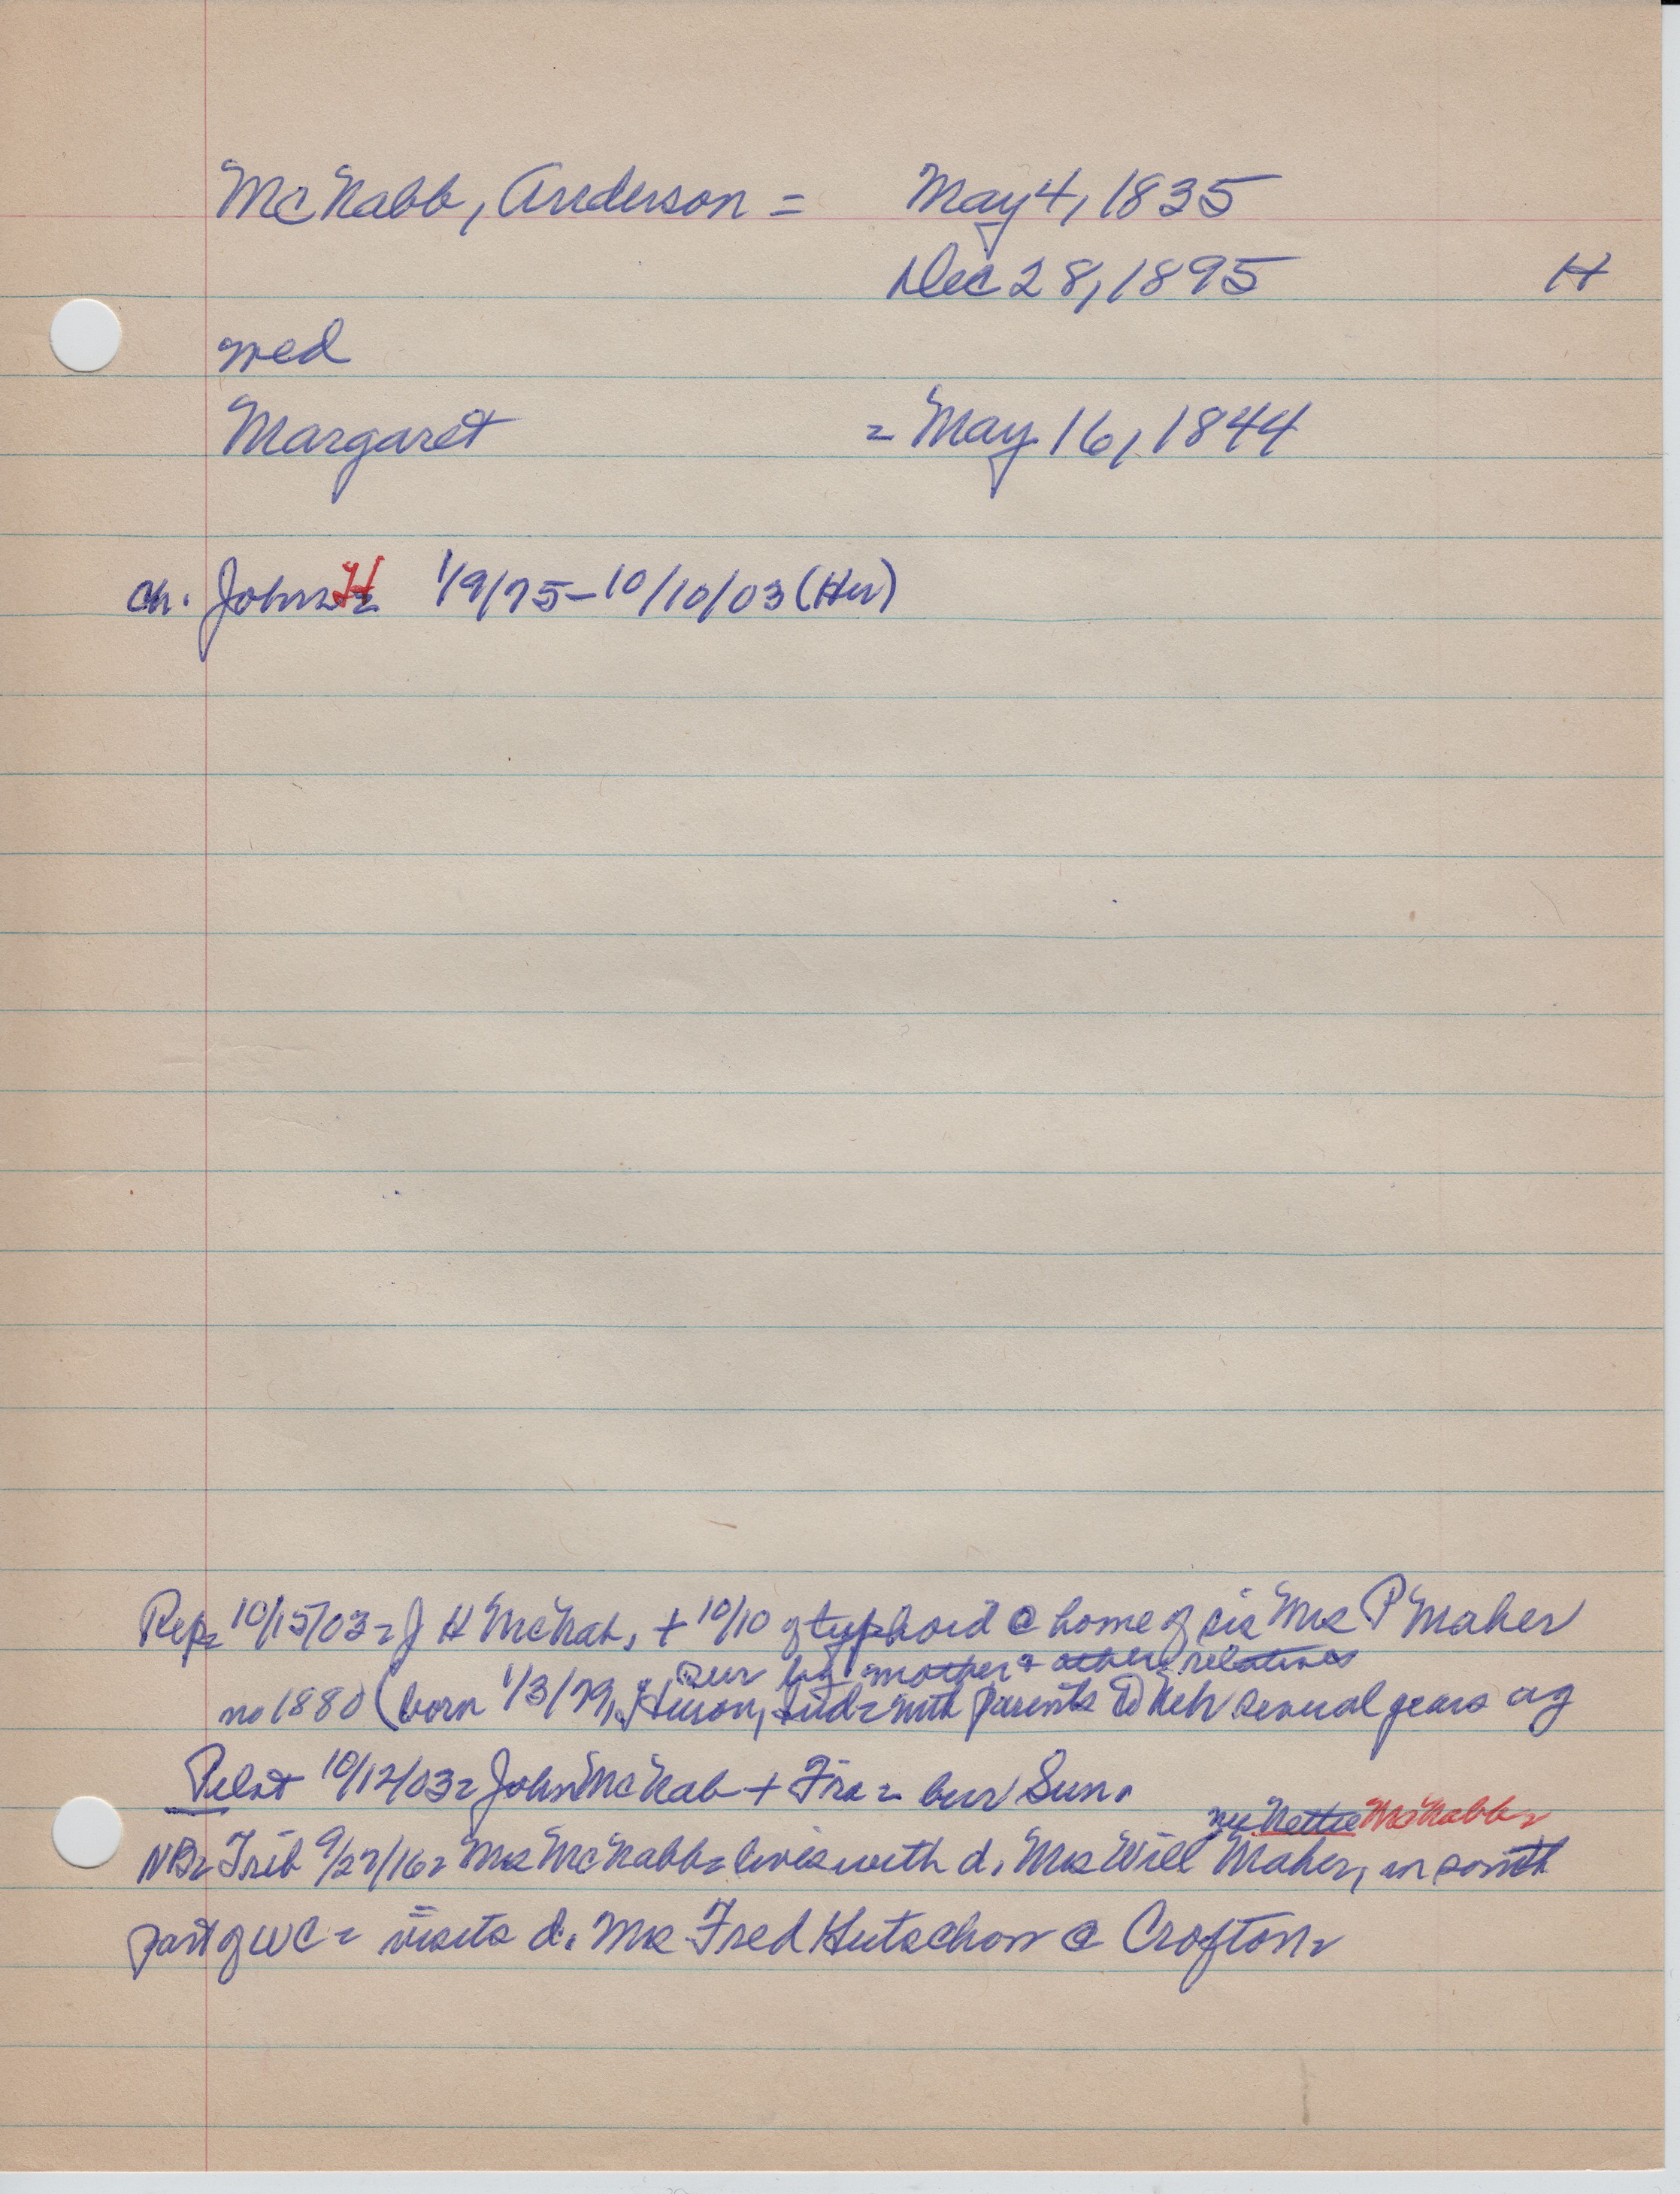 McNabb, Anderson = May 4, 1835
Dec 28, 1895 H
med
Margaret = May 16, 1844
ch. John H = 1/9/75 - 10/10/03 (Hu)
Rep = 10/15/03 = J H McNab, + 10/10 of typhoid @ home of sis Mrs P Maher
sur by mother & other relatives
no 1880 (born 1/3/79, Huron, with parents to Neh several years ag
Pilot 10/12/03 = John McNab + Fri = bur Sun.
nee Nettie McNabb =
NB = Trib 9/27/16 = Mrs McNabb = lives with d. Mrs Will Maher, in south
part of WC = visits d. Mrs Fred Hutschon @ Crofton =